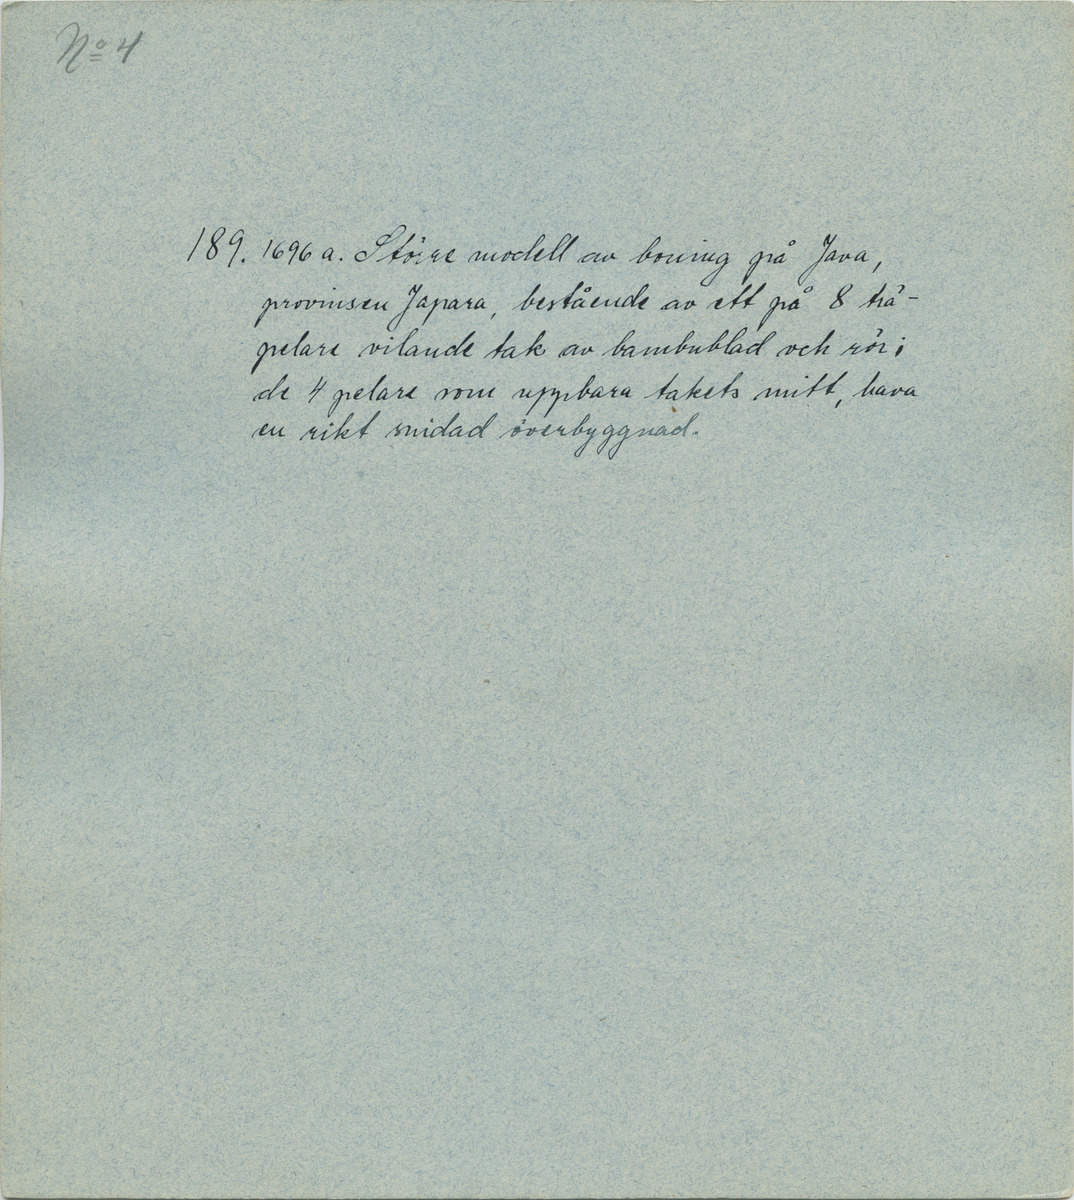 No 4
189. 1696 a. Större modell av boning på Java,
provinsen Japara, bestående av ett på 8 trä-
pelare vilande tak av bambublad och rör;
de 4 pelare som uppbära takets mitt, hava
en rikt snidad överbyggnad.